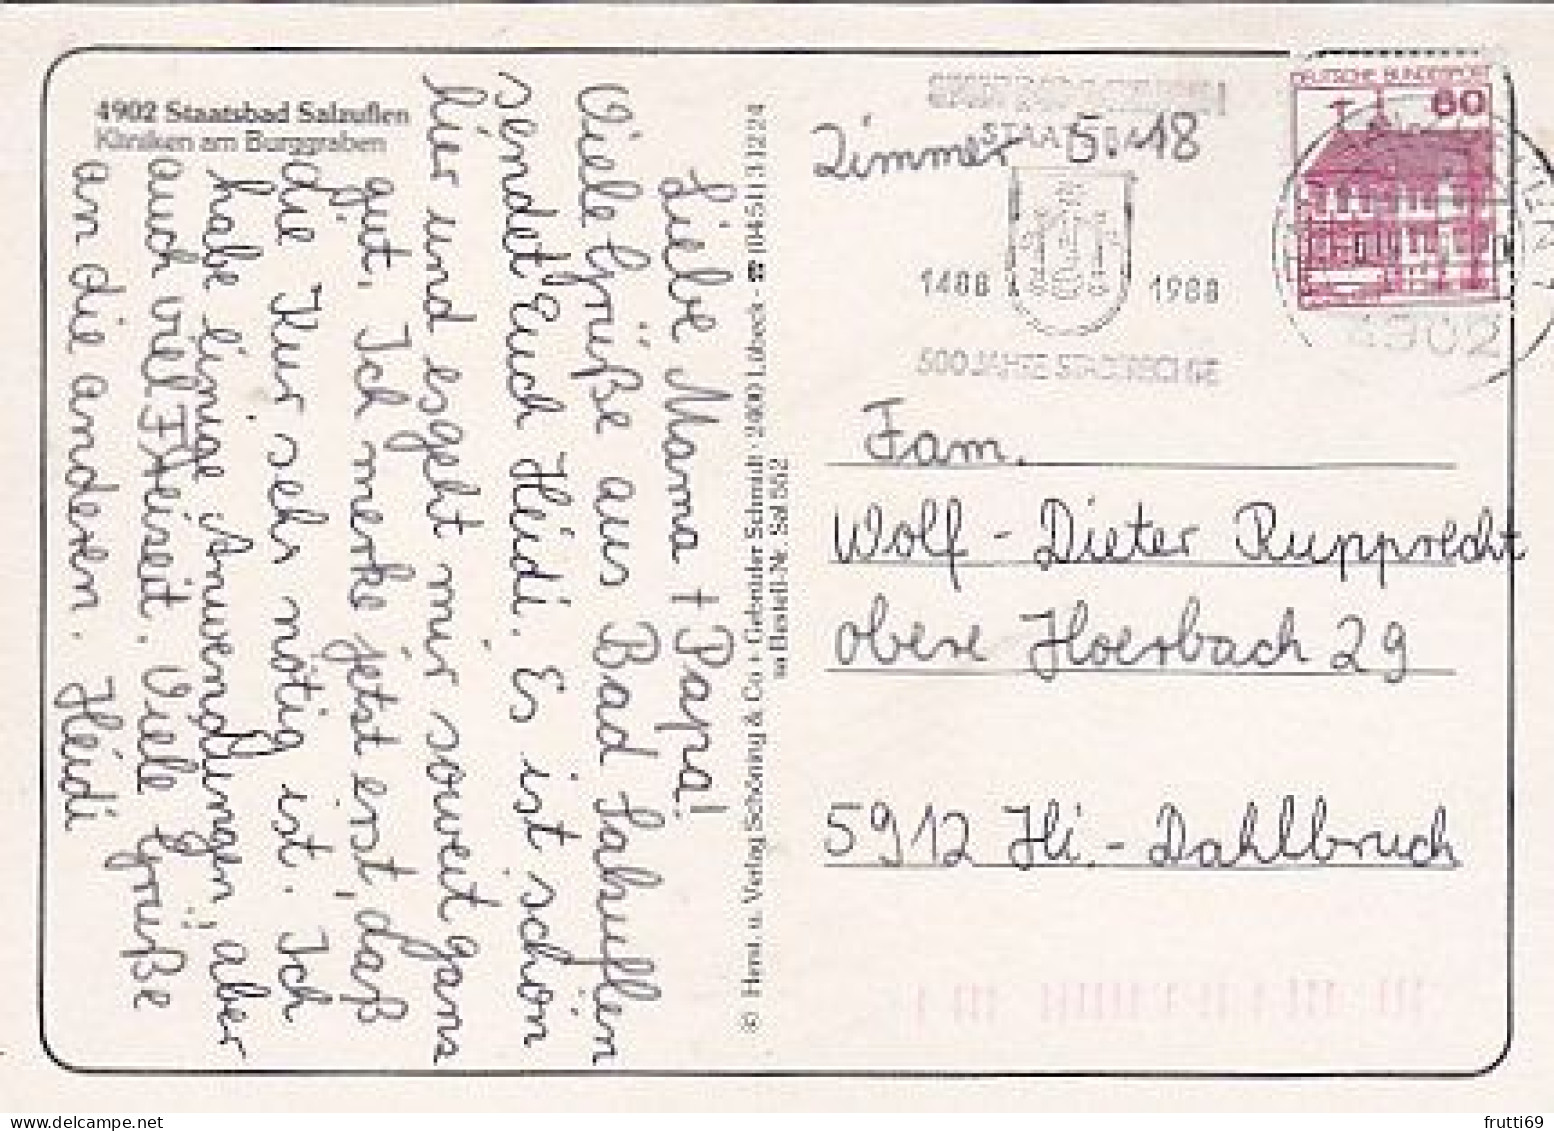 4902 Staatsbad Salzuflen
Kliniken am Burggraben
Liebe Mama + Papa!
Viele Grüße aus Bad Salzuflen
sendet Euch Heidi. Es ist schön
hier und es geht mir soweit ganz
gut. Ich merke jetzt erst, daß
die Kur sehr nötig ist. Ich
habe einige Anwendungen, aber
auch viel Freizeit. Viele Grüße
an die anderen. Heidi
© Herst. u. Verlag Schöning & Co + Gebrüder Schmidt · 2400 Lübeck · ☎ (0451) 31224
Bestell-Nr. Sal 562
Zimmer 5.18
STAATSBAD
1488 1988
500 JAHRE STADTRECHTE
DEUTSCHE BUNDESPOST
60
4902
Fam.
Wolf-Dieter Rupprecht
obere Hoerbach 29
5912 Hi.-Dahlbruch
frutti69